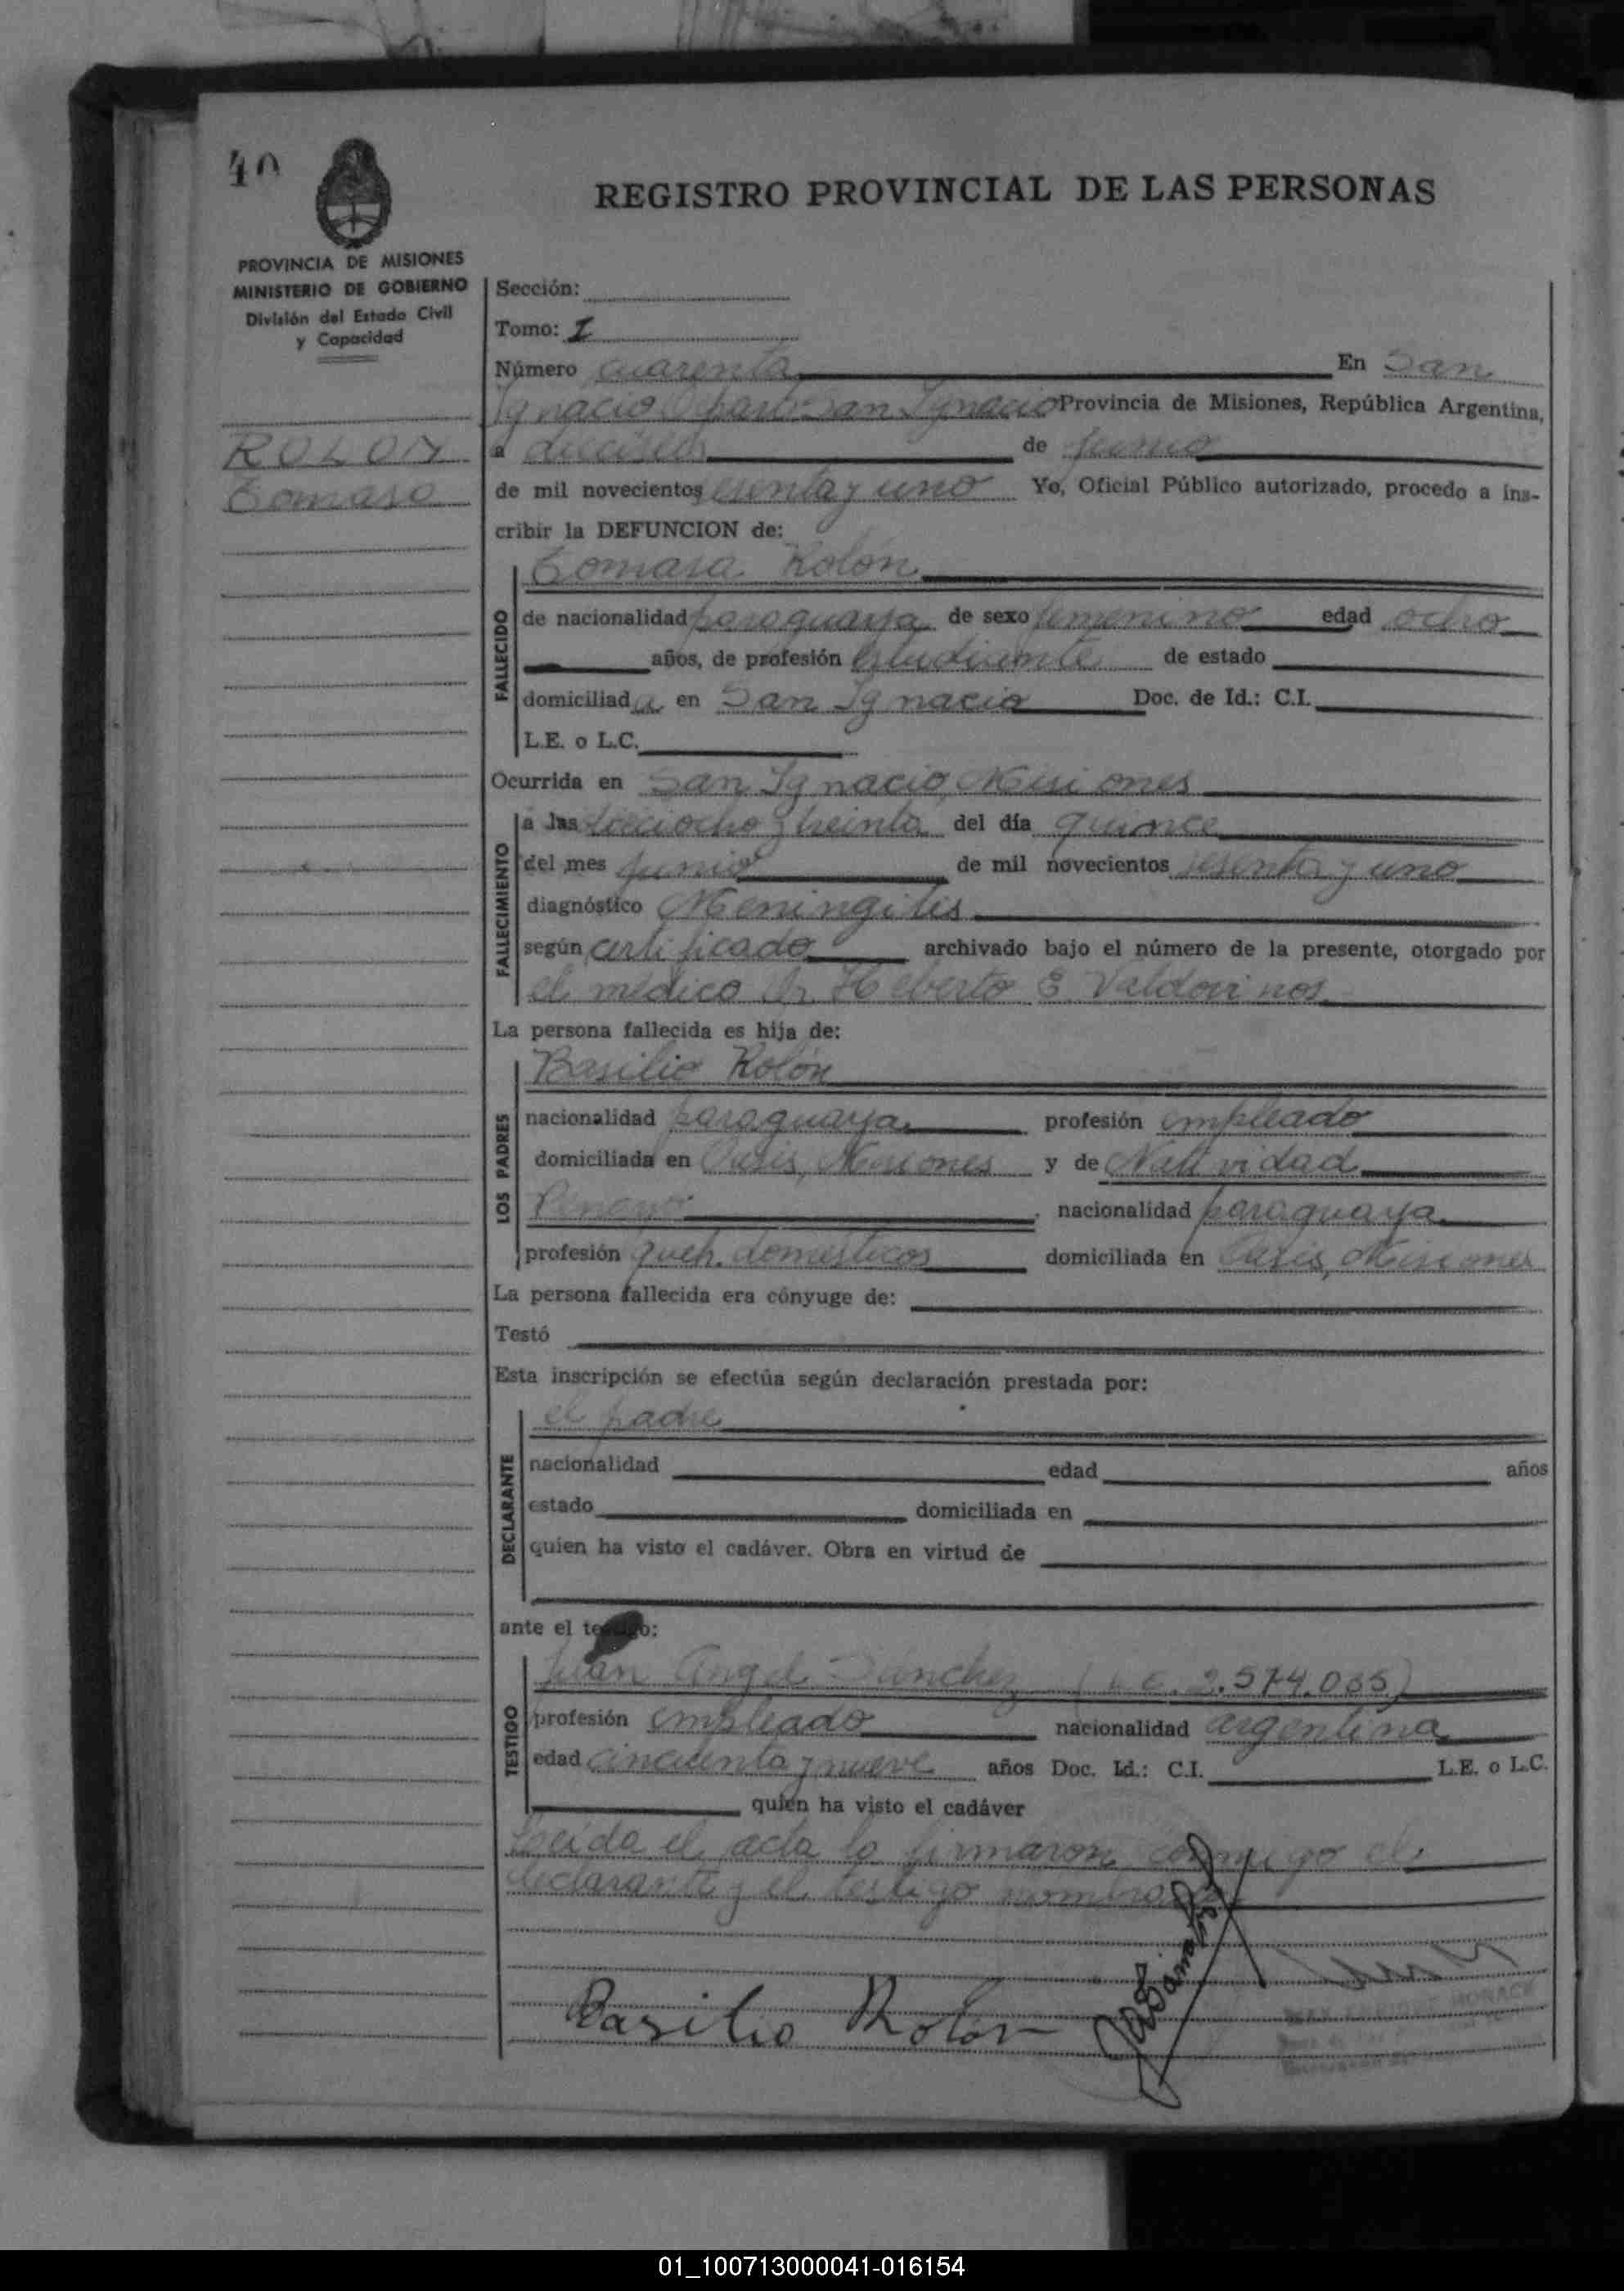 40
REGISTRO PROVINCIAL DE LAS PERSONAS
PROVINCIA DE MISIONES
MINISTERIO DE GOBIERNO
División del Estado Civil
y Capacidad
ROLON
Tomasa
Sección:
Tomo: I
Número cuarenta En San
Ignacio Dpart. San Ignacio Provincia de Misiones, República Argentina,
a dieciseis de junio
de mil novecientos sesenta y uno Yo, Oficial Público autorizado, procedo a ins-
cribir la DEFUNCION de:
Tomasa Rolón
FALLECIDO
de nacionalidad paraguaya de sexo femenino edad ocho
años, de profesión estudiante de estado
domiciliada en San Ignacio Doc. de Id.: C.I.
L.E. o L.C.
Ocurrida en San Ignacio, Misiones
FALLECIMIENTO
a las dieciocho y treinta del día quince
del mes junio de mil novecientos sesenta y uno
diagnóstico Meningitis
según certificado archivado bajo el número de la presente, otorgado por
el médico Dr. Heberto E. Valdovinos
La persona fallecida es hija de:
Basilio Rolón
LOS PADRES
nacionalidad paraguaya profesión empleado
domiciliada en Oasis, Misiones y de Natividad
nacionalidad paraguaya
profesión queh. domésticos domiciliada en Oasis, Misiones
La persona fallecida era cónyuge de:
Testó
Esta inscripción se efectúa según declaración prestada por:
el padre
DECLARANTE
nacionalidad edad años
estado domiciliada en
quien ha visto el cadáver. Obra en virtud de
ante el testigo:
Juan Angel Sánchez (L.E. 2.574.035)
TESTIGO
profesión empleado nacionalidad argentina
edad cincuenta y nueve años Doc. Id.: C.I. L.E. o L.C.
quien ha visto el cadáver
Leída el acta la firmaron conmigo el
declarante y el testigo nombrado
Basilio Rolon
ENRIQUE
01_100713000041-016154